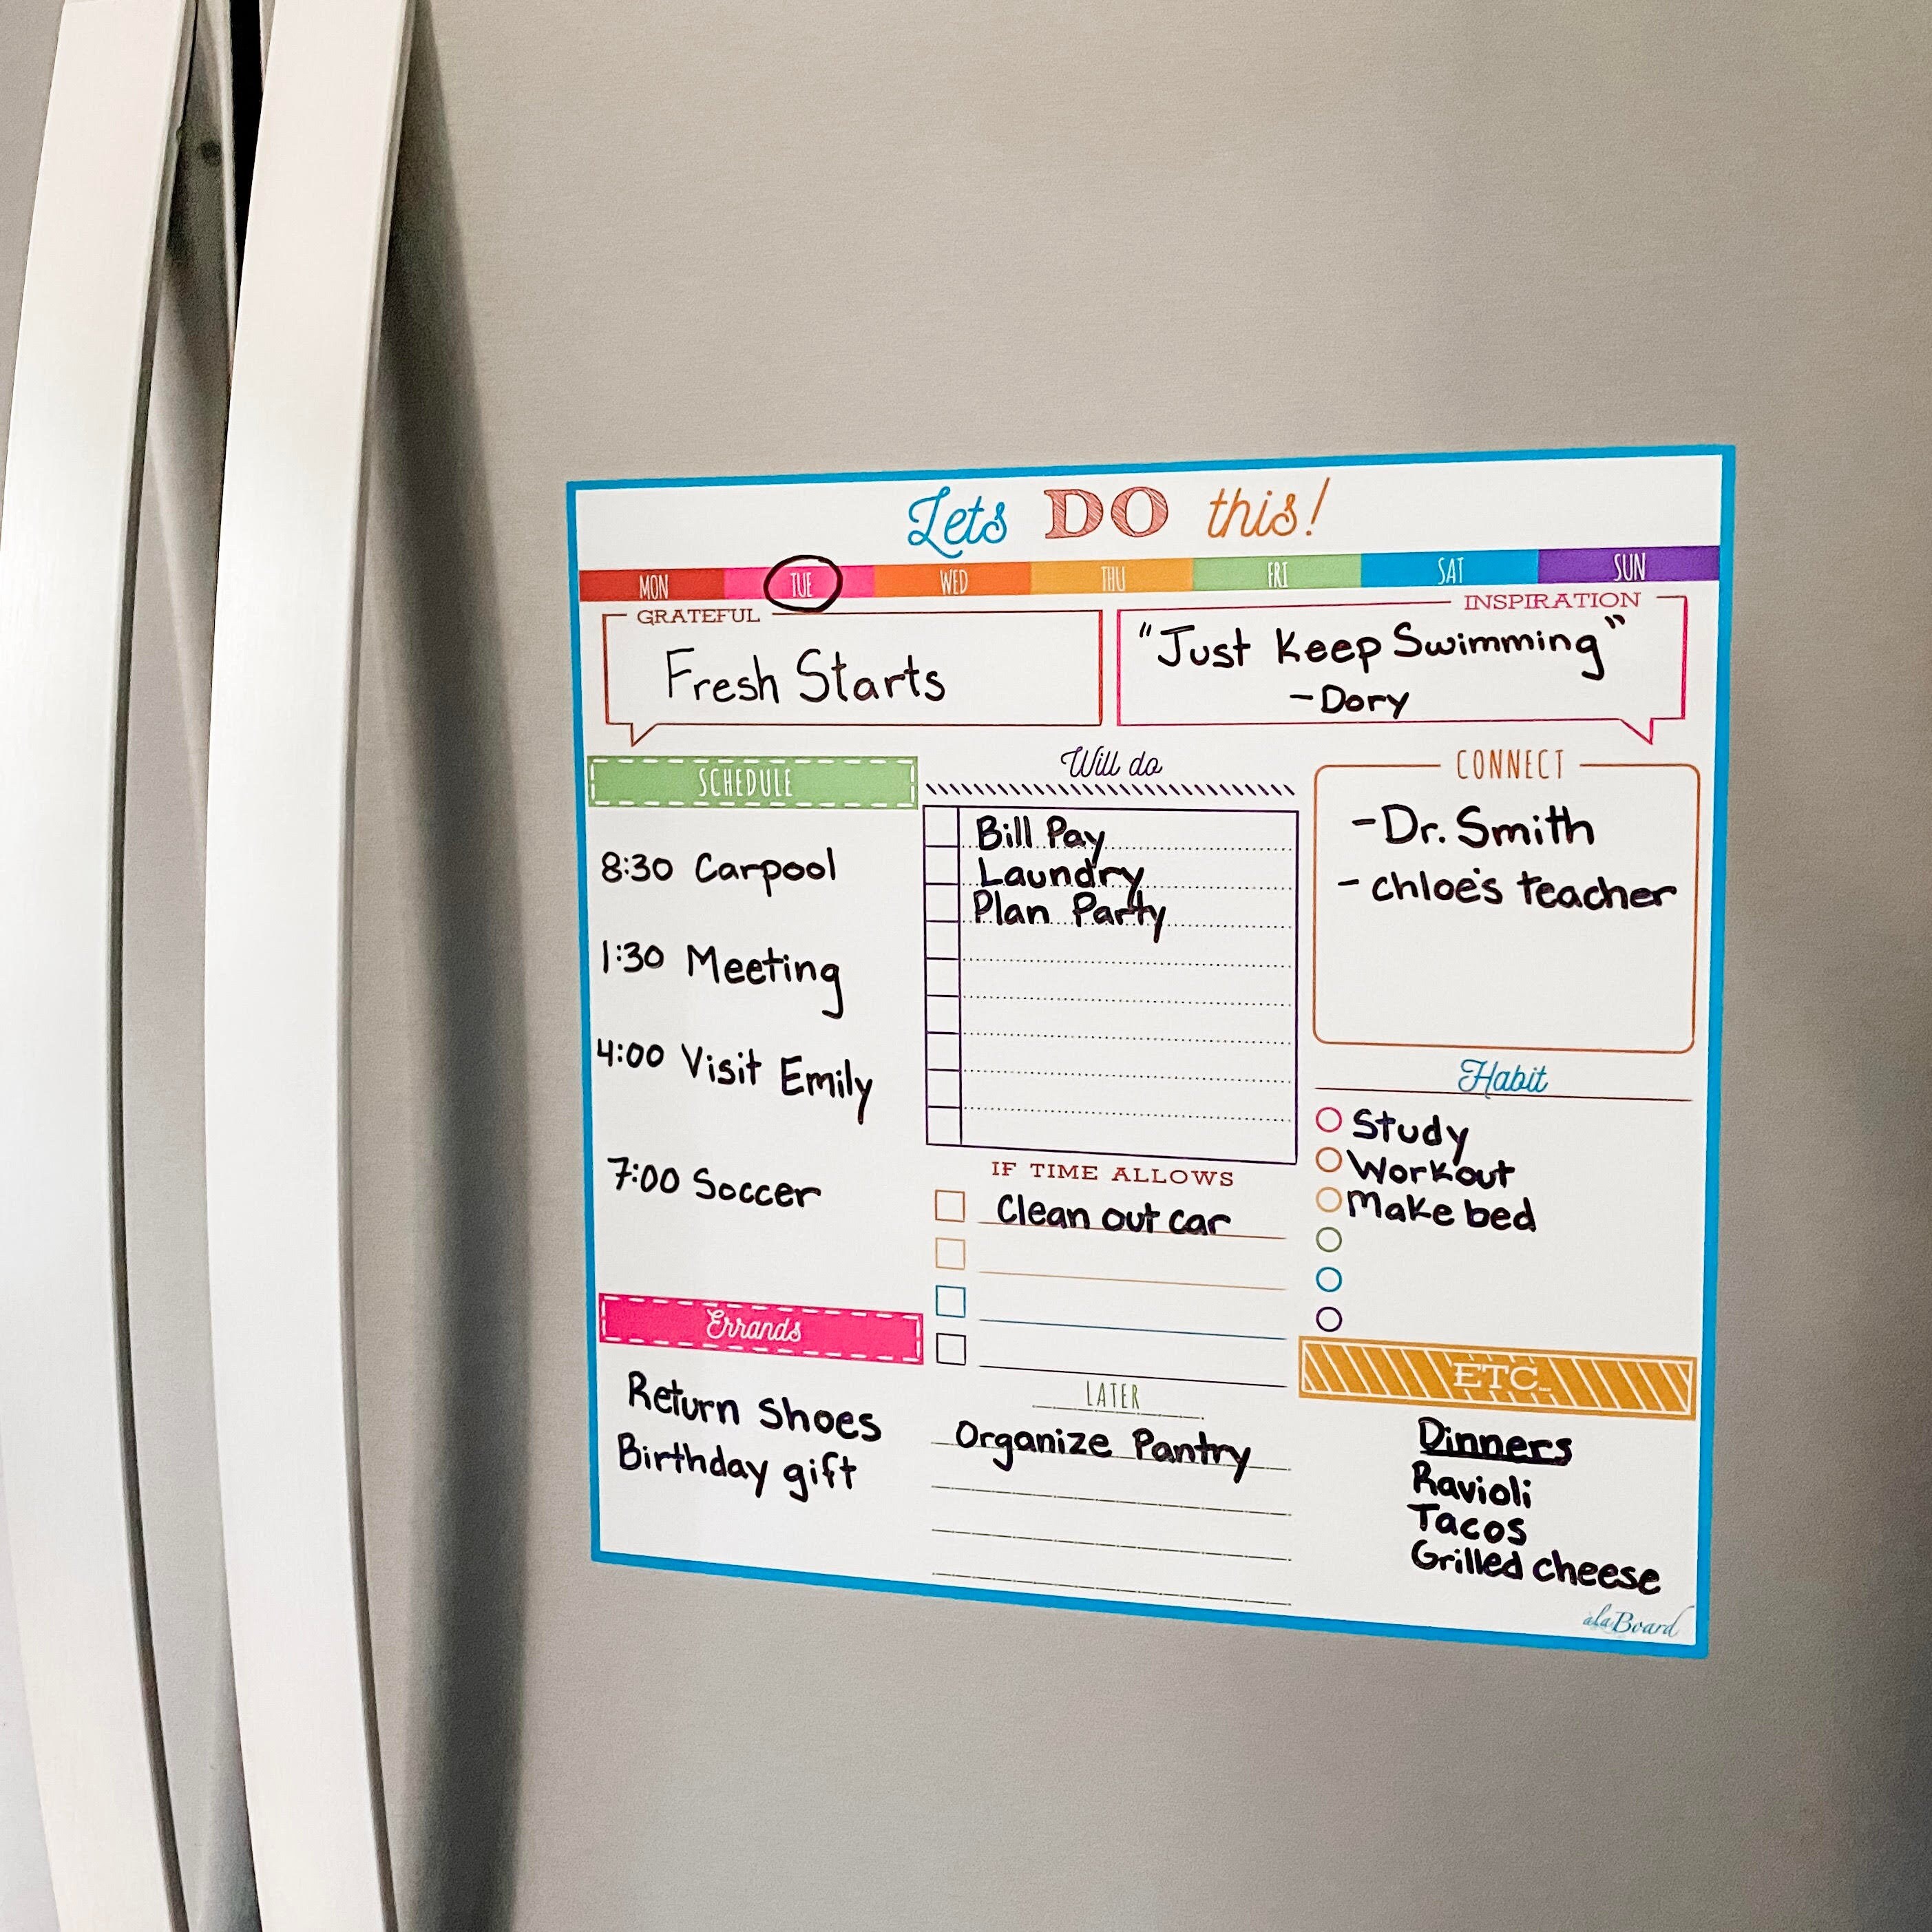 Lets DO this!
MON TUE WED THU FRI SAT SUN
GRATEFUL
Fresh Starts
INSPIRATION
"Just Keep Swimming"
-Dory
SCHEDULE
8:30 Carpool
1:30 Meeting
4:00 Visit Emily
7:00 Soccer
Errands
Return Shoes
Birthday gift
Will do
Bill Pay
Laundry
Plan Party
IF TIME ALLOWS
Clean out car
LATER
Organize Pantry
CONNECT
-Dr. Smith
- chloe's teacher
Habit
Study
Workout
Make bed
ETC.
Dinners
Ravioli
Tacos
Grilled cheese
àlaBoard